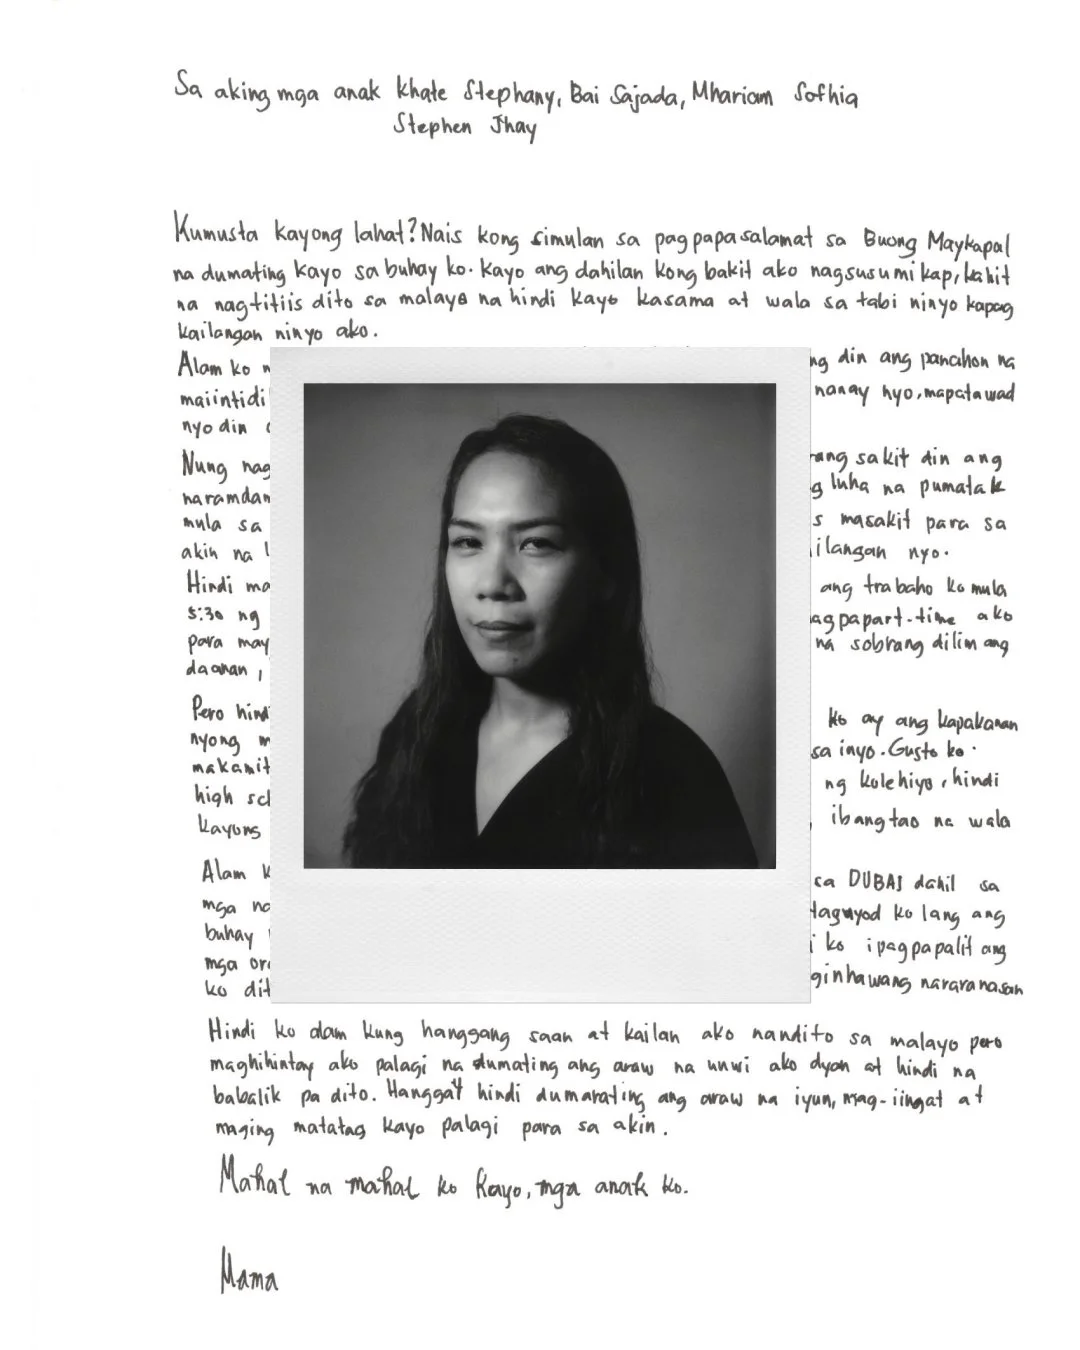 Sa aking mga anak Khate Stephany, Bai Sajada, Mhariam Sofhia
Stephen Jhay
Kumusta kayong lahat? Nais kong simulan sa pagpapasalamat sa Buong Maykapal
na dumating kayo sa buhay ko. Kayo ang dahilan kong bakit ako nagsusumikap, kahit
na nagtitiis dito sa malayo na hindi kayo kasama at wala sa tabi ninyo kapag
kailangan ninyo ako.
Alam ko ng din ang panahon na
maiintidi nanay nyo, mapatawad
nyo din
Nung nag rang sakit din ang
naramdam g luha na pumatak
mula sa s masakit para sa
akin na ilangan nyo.
Hindi ma ang trabaho ko mula
5:30 ng agpapart-time ako
para may na sobrang dilim ang
daanan,
Pero hind ko ay ang kapakanan
nyong m sa inyo. Gusto ko
makamit ng kolehiyo, hindi
high sch ibang tao na wala
kayong
Alam k sa DUBAI dahil sa
mga na taguyod ko lang ang
buhay i ko ipagpapalit ang
mga ora ginhawang nararanasan
ko dit
Hindi ko alam kung hanggang saan at kailan ako nandito sa malayo pero
maghihintay ako palagi na dumating ang araw na uuwi ako dyan at hindi na
babalik pa dito. Hanggat hindi dumarating ang araw na iyun, mag-iingat at
maging matatag kayo palagi para sa akin.
Mahal na mahal ko kayo, mga anak ko.
Mama